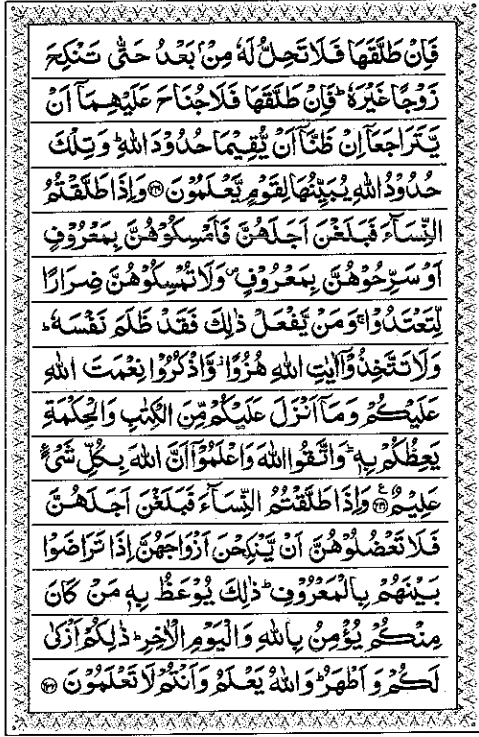 فَاِنۡ طَلَّقَهَا فَلَا تَحِلُّ لَهٗ مِنۡۢ بَعۡدُ حَتّٰى تَنۡكِحَ
زَوۡجًا غَيۡرَهٗ ؕ فَاِنۡ طَلَّقَهَا فَلَا جُنَاحَ عَلَيۡهِمَاۤ اَنۡ
يَّتَرَاجَعَاۤ اِنۡ ظَنَّاۤ اَنۡ يُّقِيۡمَا حُدُوۡدَ اللّٰهِ ؕ وَتِلۡكَ
حُدُوۡدُ اللّٰهِ يُبَيِّنُهَا لِقَوۡمٍ يَّعۡلَمُوۡنَ ﴿۲۳۰﴾ وَاِذَا طَلَّقۡتُمُ
النِّسَآءَ فَبَلَغۡنَ اَجَلَهُنَّ فَاَمۡسِكُوۡهُنَّ بِمَعۡرُوۡفٍ
اَوۡ سَرِّحُوۡهُنَّ بِمَعۡرُوۡفٍ ۪ وَلَا تُمۡسِكُوۡهُنَّ ضِرَارًا
لِّتَعۡتَدُوۡا ۚ وَمَنۡ يَّفۡعَلۡ ذٰلِكَ فَقَدۡ ظَلَمَ نَفۡسَهٗ ؕ
وَلَا تَتَّخِذُوۡۤا اٰيٰتِ اللّٰهِ هُزُوًا ۫ وَّاذۡكُرُوۡا نِعۡمَتَ اللّٰهِ
عَلَيۡكُمۡ وَمَاۤ اَنۡزَلَ عَلَيۡكُمۡ مِّنَ الۡكِتٰبِ وَالۡحِكۡمَةِ
يَعِظُكُمۡ بِهٖ ؕ وَاتَّقُوا اللّٰهَ وَاعۡلَمُوۡۤا اَنَّ اللّٰهَ بِكُلِّ شَىۡءٍ
عَلِيۡمٌ ﴿۲۳۱﴾ وَاِذَا طَلَّقۡتُمُ النِّسَآءَ فَبَلَغۡنَ اَجَلَهُنَّ
فَلَا تَعۡضُلُوۡهُنَّ اَنۡ يَّنۡكِحۡنَ اَزۡوَاجَهُنَّ اِذَا تَرَاضَوۡا
بَيۡنَهُمۡ بِالۡمَعۡرُوۡفِ ؕ ذٰلِكَ يُوۡعَظُ بِهٖ مَنۡ كَانَ
مِنۡكُمۡ يُؤۡمِنُ بِاللّٰهِ وَالۡيَوۡمِ الۡاٰخِرِ ؕ ذٰلِكُمۡ اَزۡكٰى
لَكُمۡ وَاَطۡهَرُ ؕ وَاللّٰهُ يَعۡلَمُ وَاَنۡتُمۡ لَا تَعۡلَمُوۡنَ ﴿۲۳۲﴾